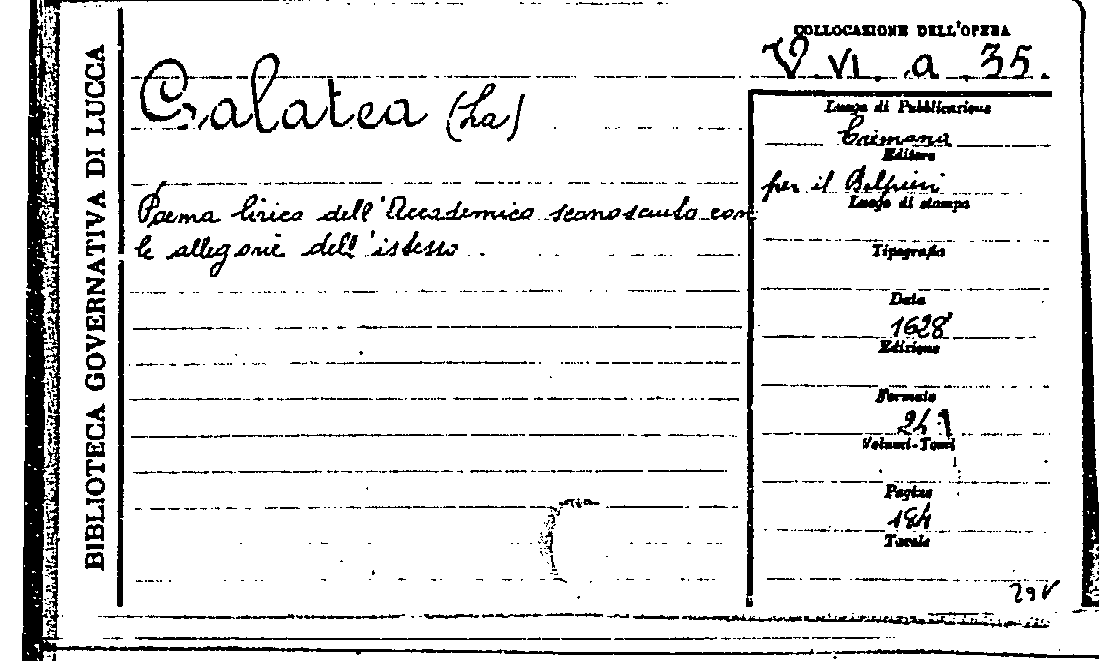 BIBLIOTECA GOVERNATIVA DI LUCCA
COLLOCAZIONE DELL'OPERA
V. VI. a. 35.
Galatea (La)
Poema lirico dell'Accademico sconosciuto con
le allegorie dell'istesso
Luogo di Pubblicazione
Cremona
Editore
per il Belpieri
Luogo di stampa
Tipografia
Data
1628
Edizione
Formato
24°
Volumi-Tomi
Pagine
184
Tavole